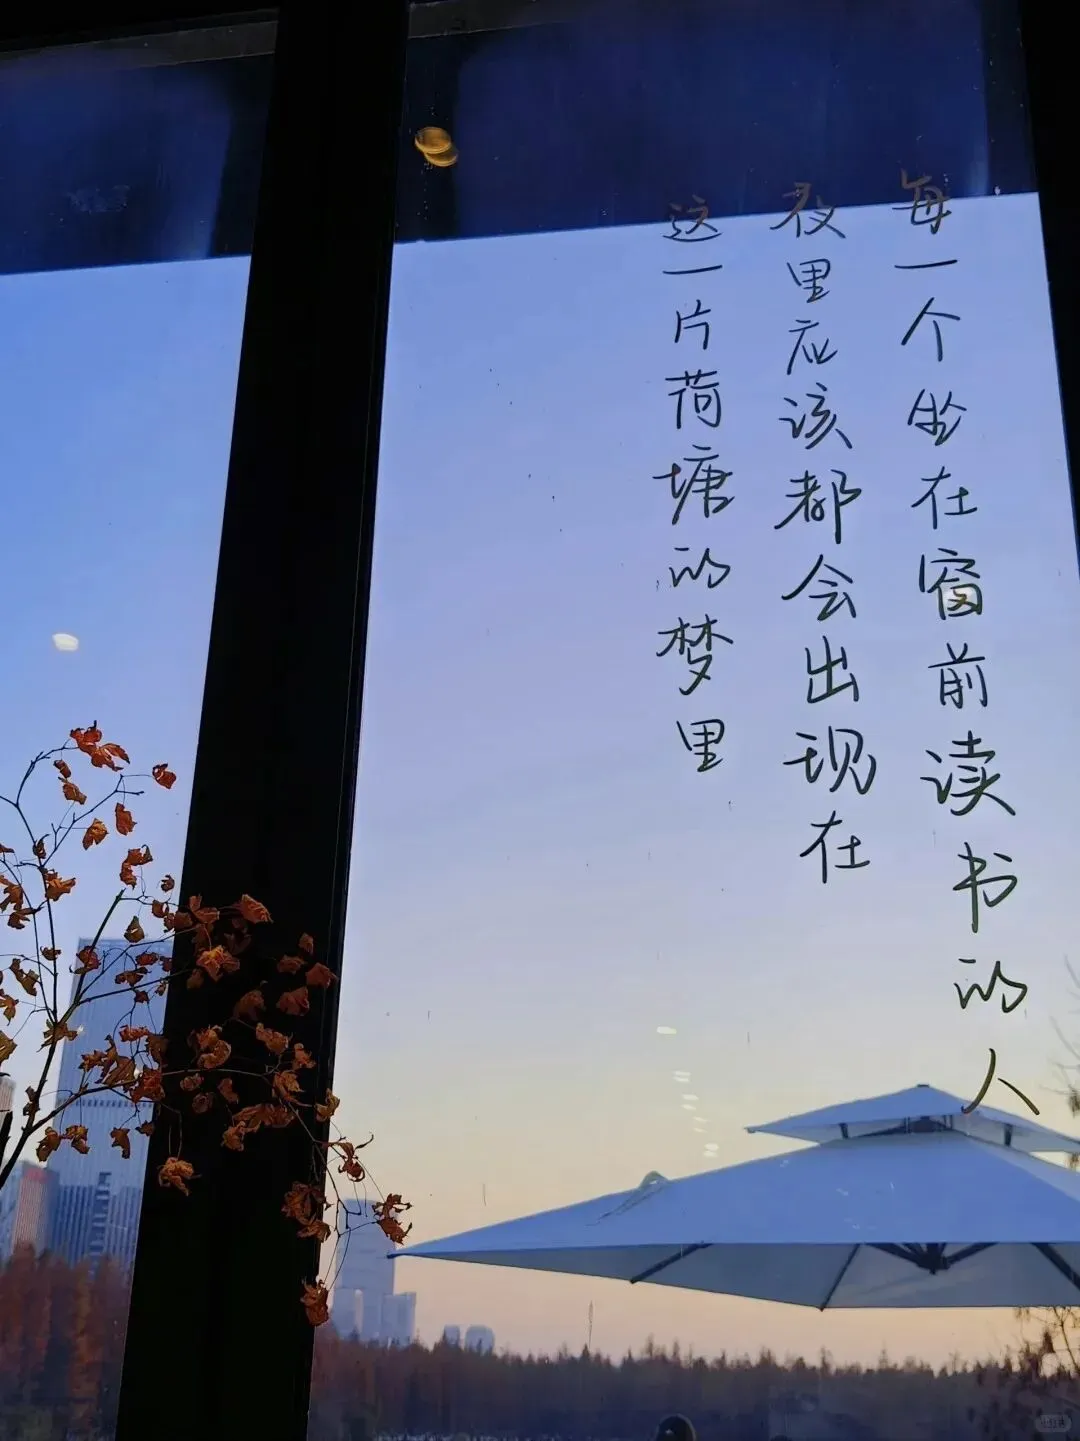 每一个坐在窗前读书的人
夜里应该都会出现在
这一片荷塘的梦里